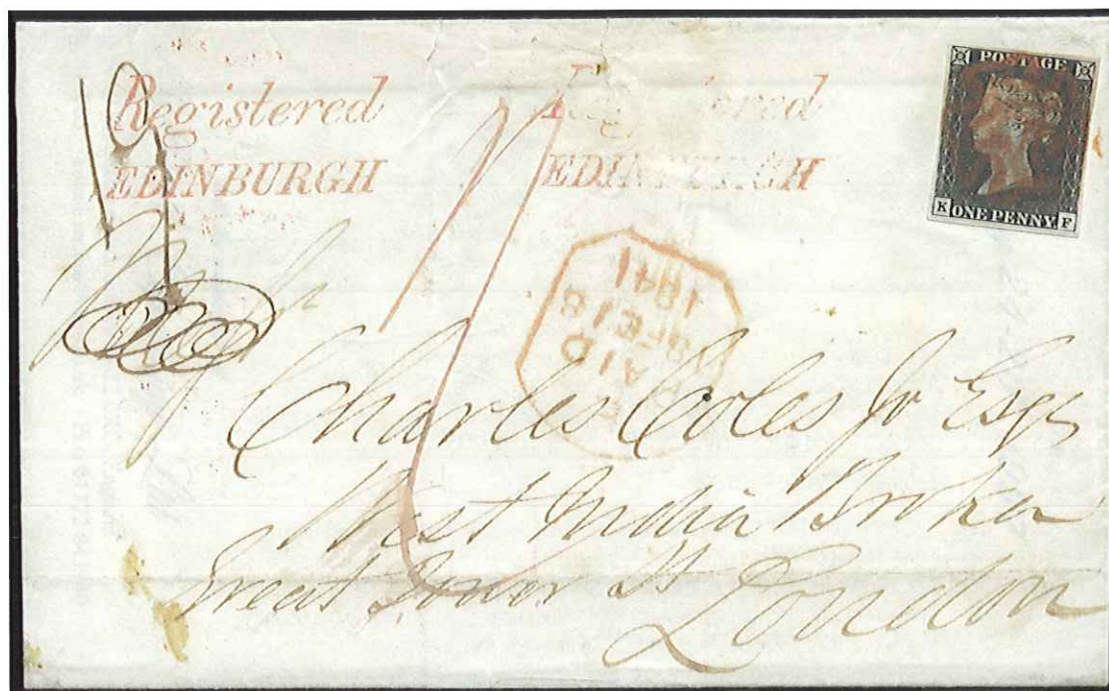 Registered
EDINBURGH
Registered
EDINBURGH
POSTAGE
K ONE PENNY. F
PAID
FE 18
1841
Charles Coles Jr Esqr
West India Broker
Great Tower St
London